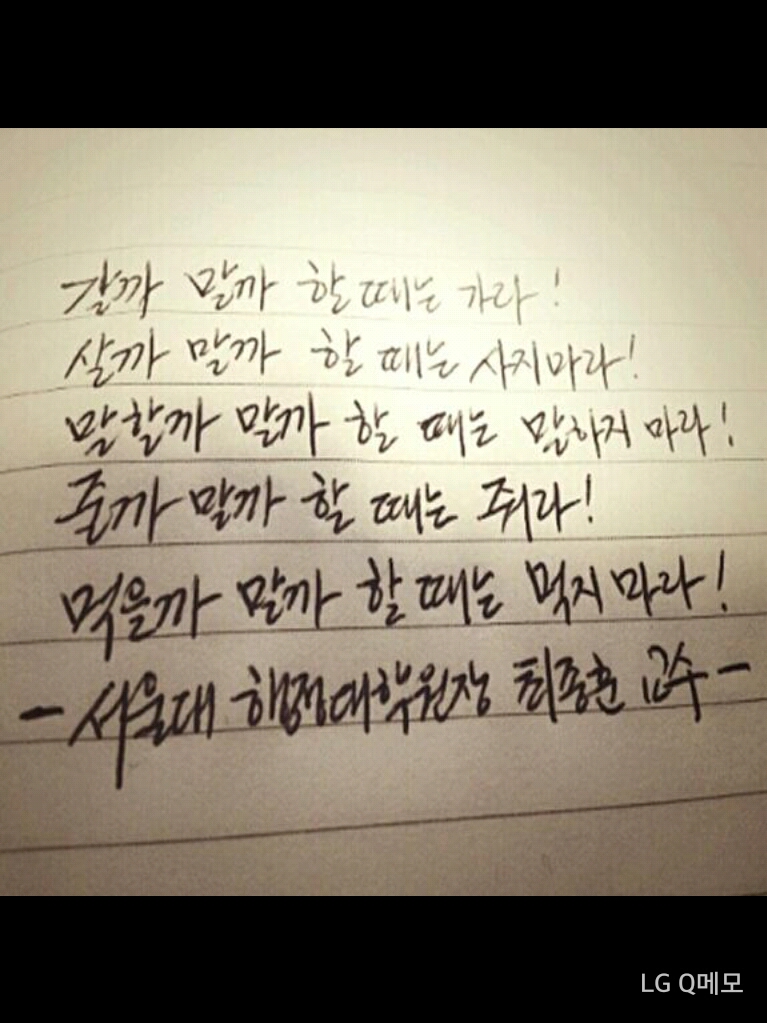 갈까 말까 할 때는 가라!
살까 말까 할 때는 사지마라!
말할까 말까 할 때는 말하지 마라!
줄까 말까 할 때는 줘라!
먹을까 말까 할 때는 먹지 마라!
- 서울대 행정대학원장 최종훈 교수 -
LG Q메모